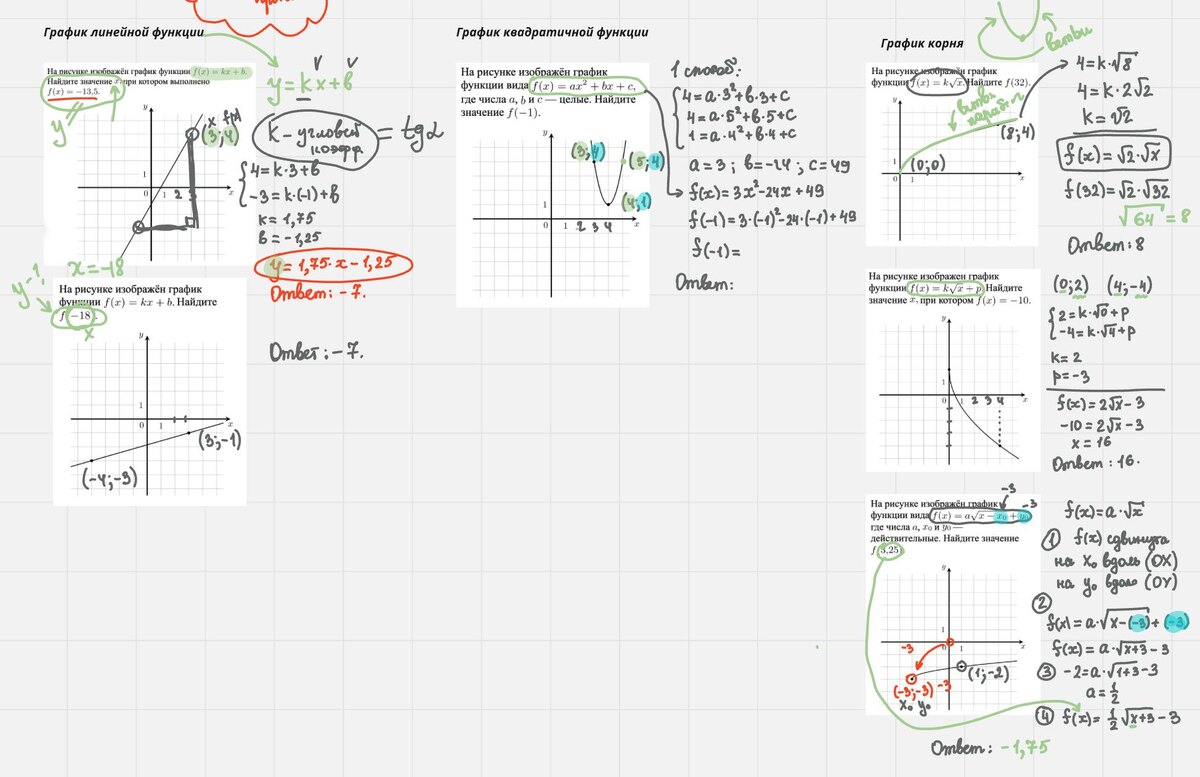 График линейной функции
На рисунке изображён график функции f(x) = kx + b.
Найдите значение x, при котором выполнено
f(x) = −13,5.
y
y
1
0
1
2
x
x f(x)
(3;4)
y = kx + b
k – угловой коэфф. = tgα
4=k·3+b
-3=k·(-1)+b
k=1,75
b=-1,25
y=1,75·x-1,25
Ответ: -7.
x=-18
y-?
На рисунке изображён график
функции f(x) = kx + b. Найдите
f(−18).
x
y
1
0
1
x
(3;-1)
(-4;-3)
Ответ: -7.
График квадратичной функции
На рисунке изображён график
функции вида f(x) = ax² + bx + c,
где числа a, b и c — целые. Найдите
значение f(−1).
y
(3;4)
(5;4)
(4;1)
1
0
1
2 3 4
x
1 способ:
4=a·3²+b·3+c
4=a·5²+b·5+c
1=a·4²+b·4+c
a=3; b=-24; c=49
f(x)=3x²-24x+49
f(-1)=3·(-1)²-24·(-1)+49
f(-1)=
Ответ:
ветви
График корня
На рисунке изображён график
функции f(x) = k√x. Найдите f(32).
y
ветвь
(8;4)
(0;0)
1
0
1
x
4=k·√8
4=k·2√2
k=√2
f(x)=√2·√x
f(32)=√2·√32
√64=8
Ответ: 8
На рисунке изображен график
функции f(x) = k√x + p. Найдите
значение x, при котором f(x) = −10.
y
1
0
1
2 3 4
x
(0;2) (4;-4)
2=k·√0+p
-4=k·√4+p
k=2
p=-3
f(x)=2√x-3
-10=2√x-3
x=16
Ответ: 16.
-3
-3
На рисунке изображён график
функции вида f(x) = a√x − x₀ + y₀,
где числа a, x₀ и y₀ —
действительные. Найдите значение
f(3,25).
y
1
0
1
x
-3
-3
(1;-2)
(-3;-3)
x₀ y₀
f(x)=a·√x
① f(x) сдвинута
на x₀ вдоль (OX)
на y₀ вдоль (OY)
②
f(x)=a·√x-(-3)+(-3)
f(x)=a·√x+3-3
③ -2=a·√1+3-3
a=1/2
④ f(x)=1/2√x+3-3
Ответ: -1,75